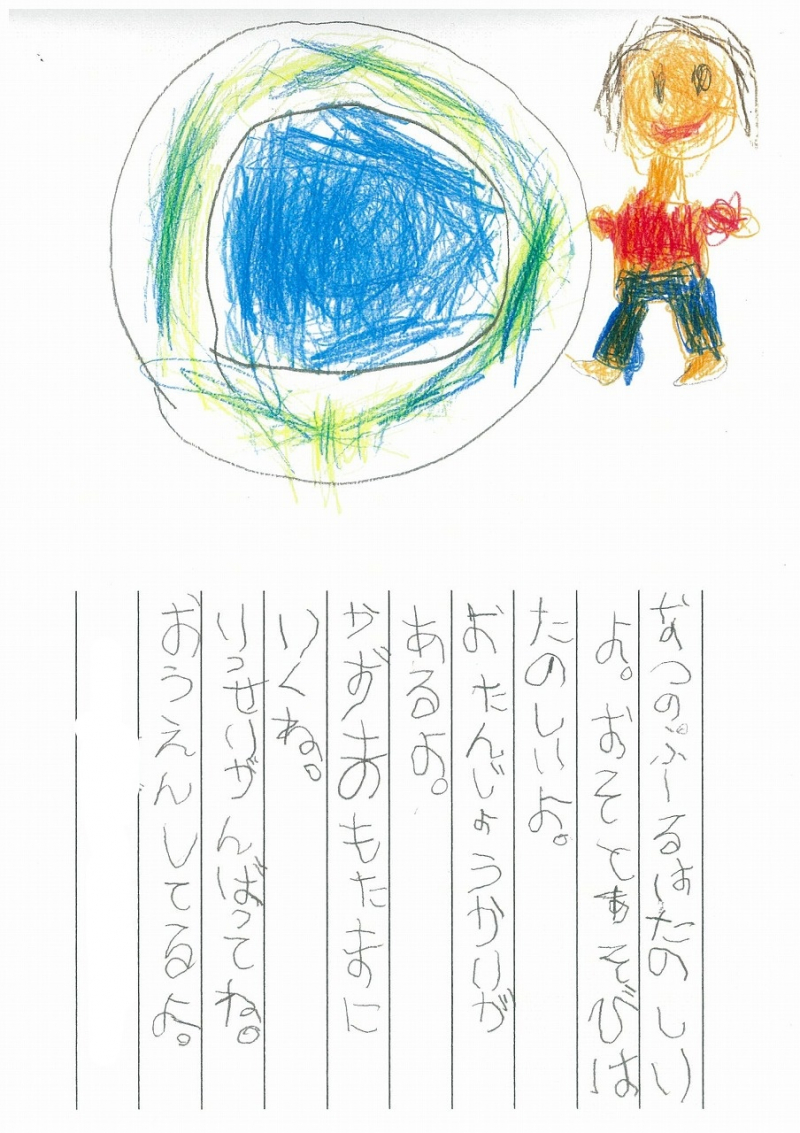 なつのぷーるはたのしい
よ。おそとあそびは
たのしいよ。
おたんじょうかいが
あるよ。
かずまもたまに
いくね。
いっせいがんばってね。
おうえんしてるよ。